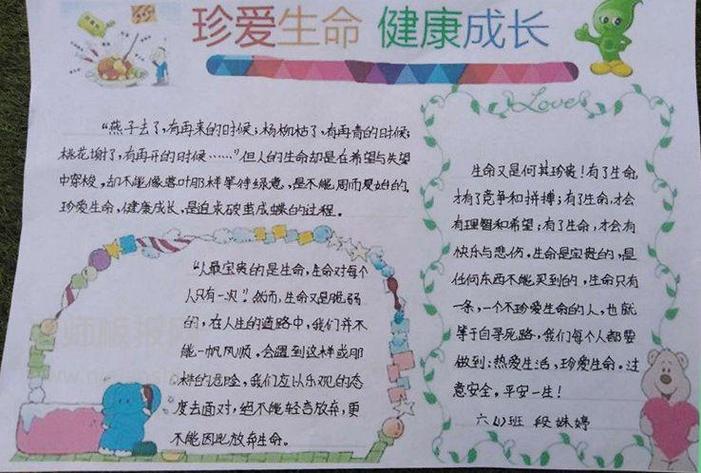 珍爱生命 健康成长
Love
"燕子去了,有再来的时候;杨柳枯了,有再青的时候;
桃花谢了,有再开的时候……"但人的生命却是在希望与失望
中穿梭,却不能像落叶那样等待绿意,是不能周而复始的。
珍爱生命,健康成长,是追求破茧成蝶的过程。
"人最宝贵的是生命,生命对每个
人只有一次"。然而,生命又是脆弱
的,在人生的道路中,我们并不
能一帆风顺,会遇到这样或那
样的危险,我们应以乐观的态
度去面对,绝不能轻言放弃,更
不能因此放弃生命。
生命又是何其珍贵!有了生命,
才有了竞争和拼搏;有了生命,才会
有理智和希望;有了生命,才会有
快乐与悲伤。生命是宝贵的,是
任何东西不能买到的,生命只有
一条,一个不珍爱生命的人,也就
等于自寻死路,我们每个人都要
做到:热爱生活,珍爱生命。注
意安全,平安一生!
六(1)班 段姝婷